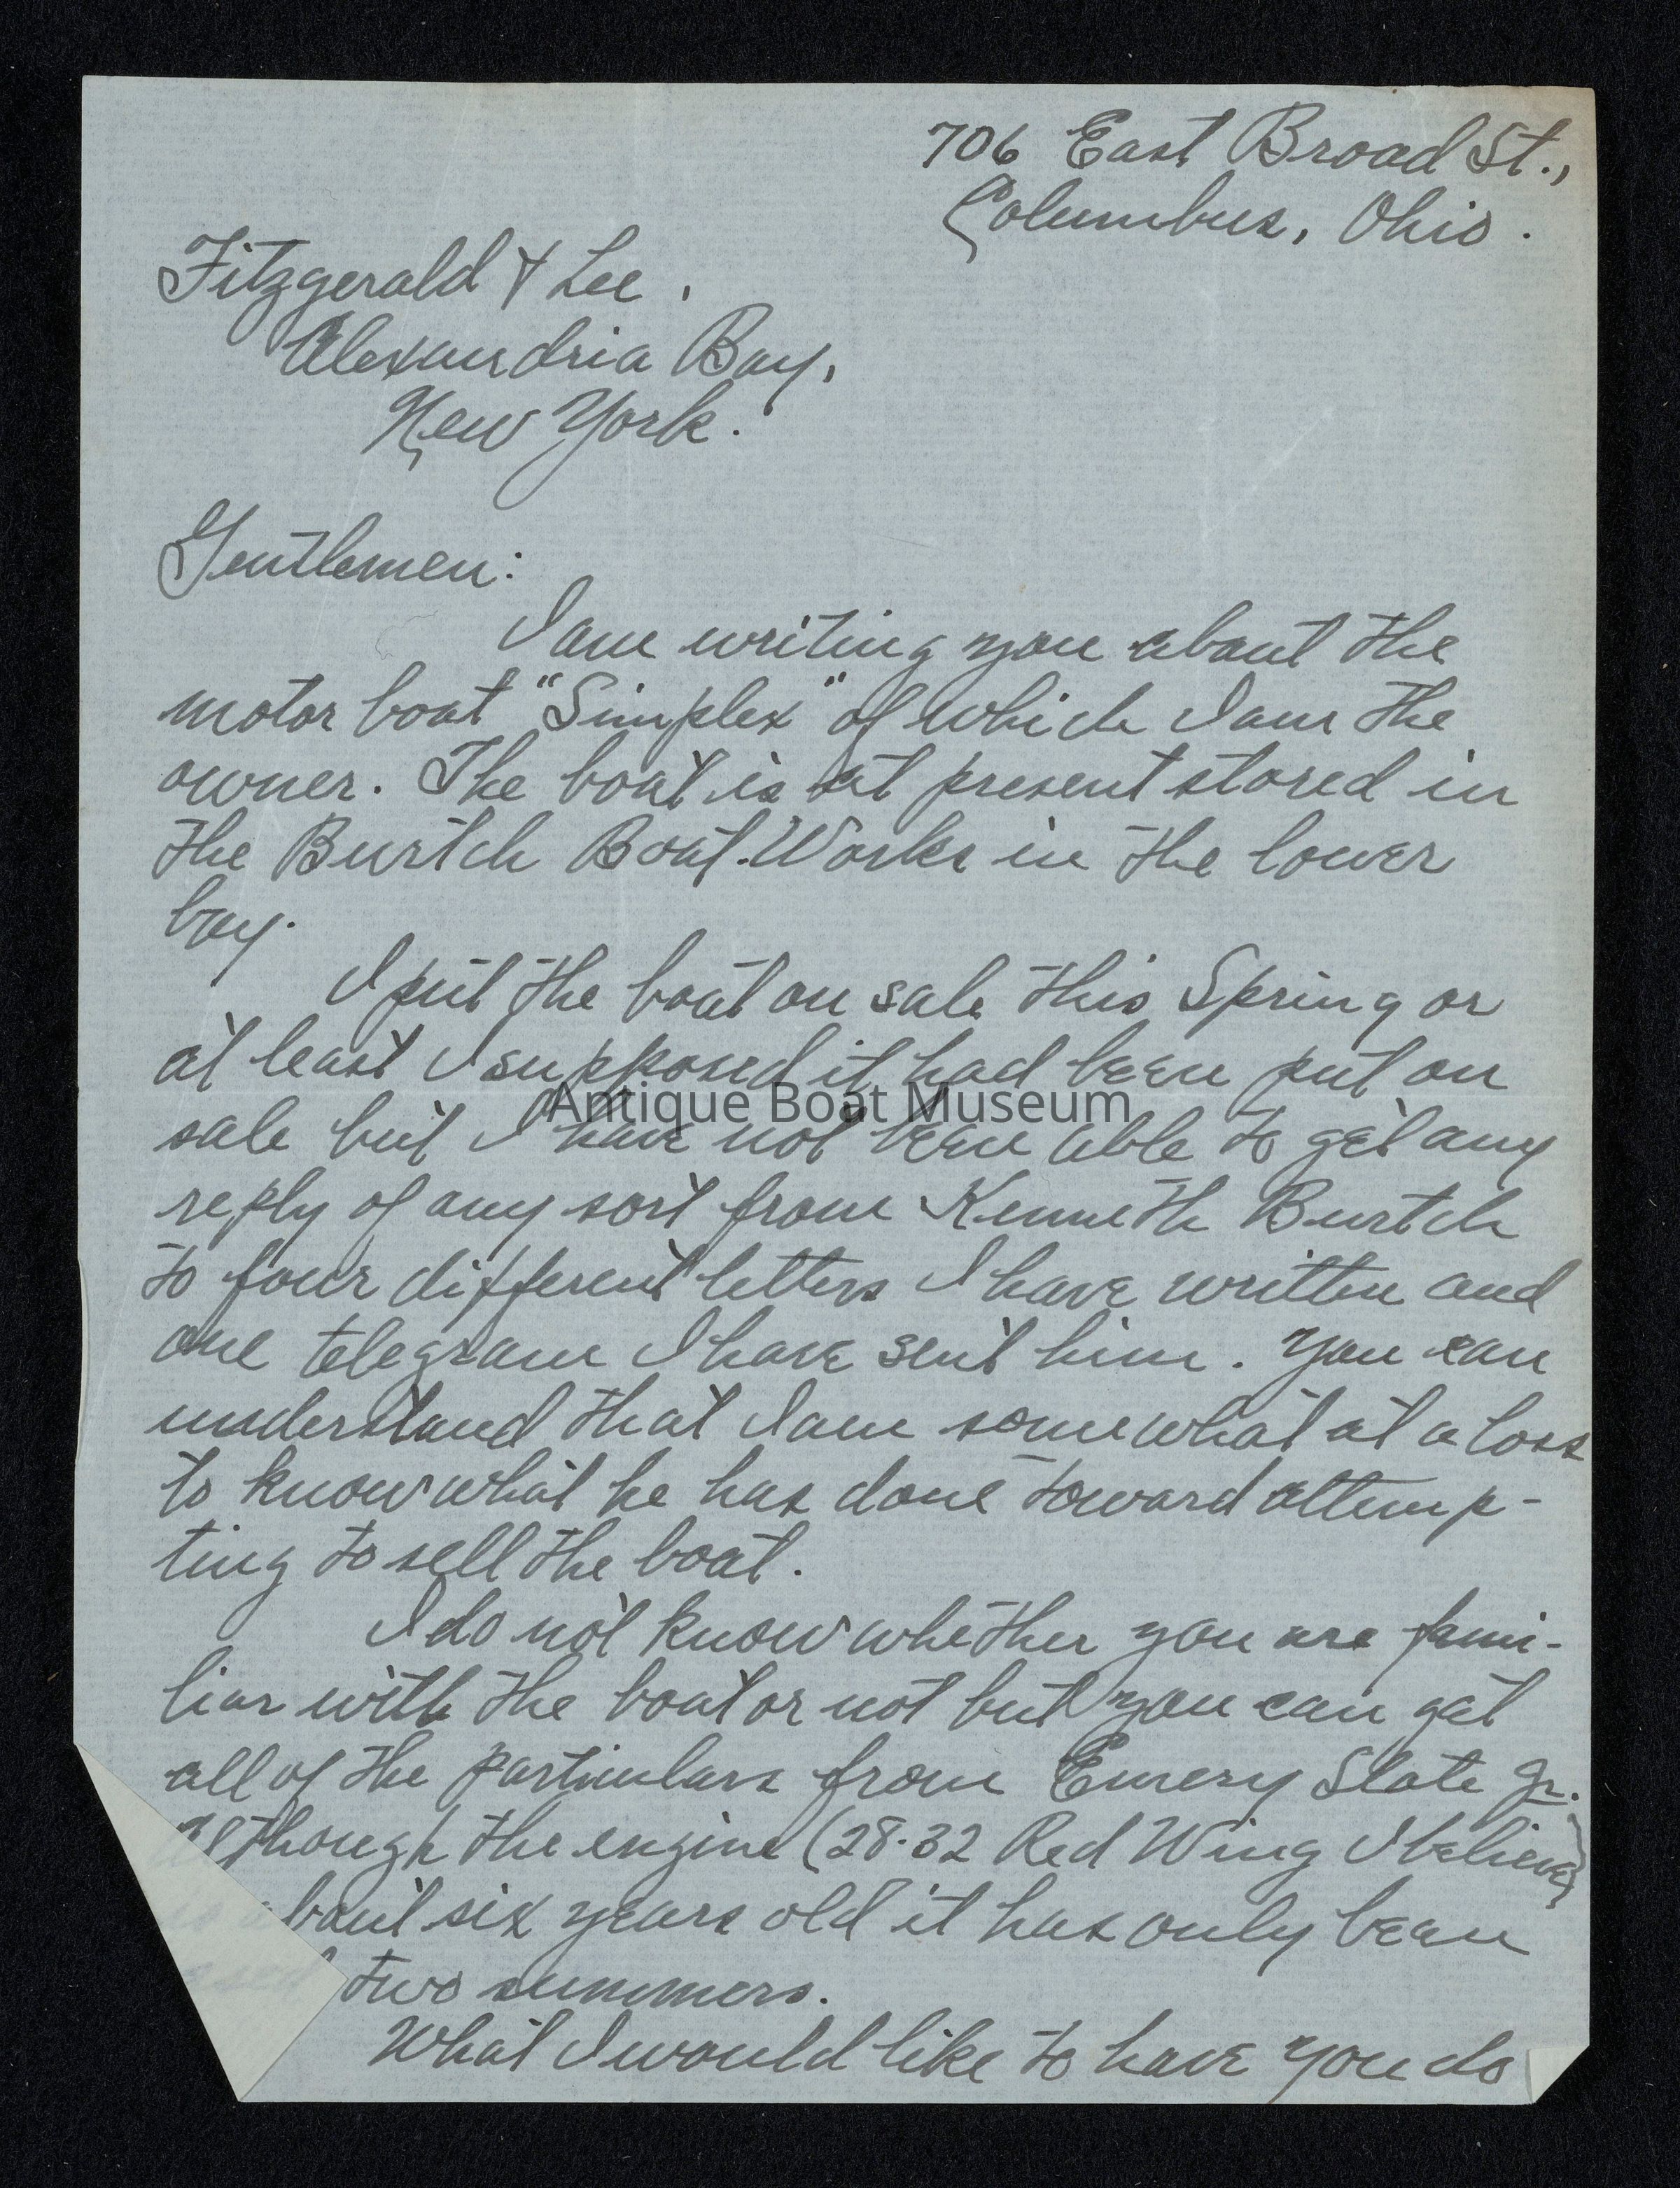 706 East Broad St.,
Columbus, Ohio.
Fitzgerald & Lee,
Alexandria Bay,
New York.
Gentlemen:
I am writing you about the
motor boat "Simplex" of which I am the
owner. The boat is at present stored in
the Burtch Boat Works in the lower
bay.
I put the boat on sale this Spring or
at least I supposed it had been put on
Antique Boat Museum
sale but I have not been able to get any
reply of any sort from Kenneth Burtch
to four different letters I have written and
one telegram I have sent him. You can
understand that I am somewhat at a loss
to know what he has done toward attemp-
ting to sell the boat.
I do not know whether you are fami-
liar with the boat or not but you can get
all of the particulars from Emery Slate Jr.
Although the engine (28-32 Red Wing I believe)
about six years old it has only been
two summers.
What I would like to have you do